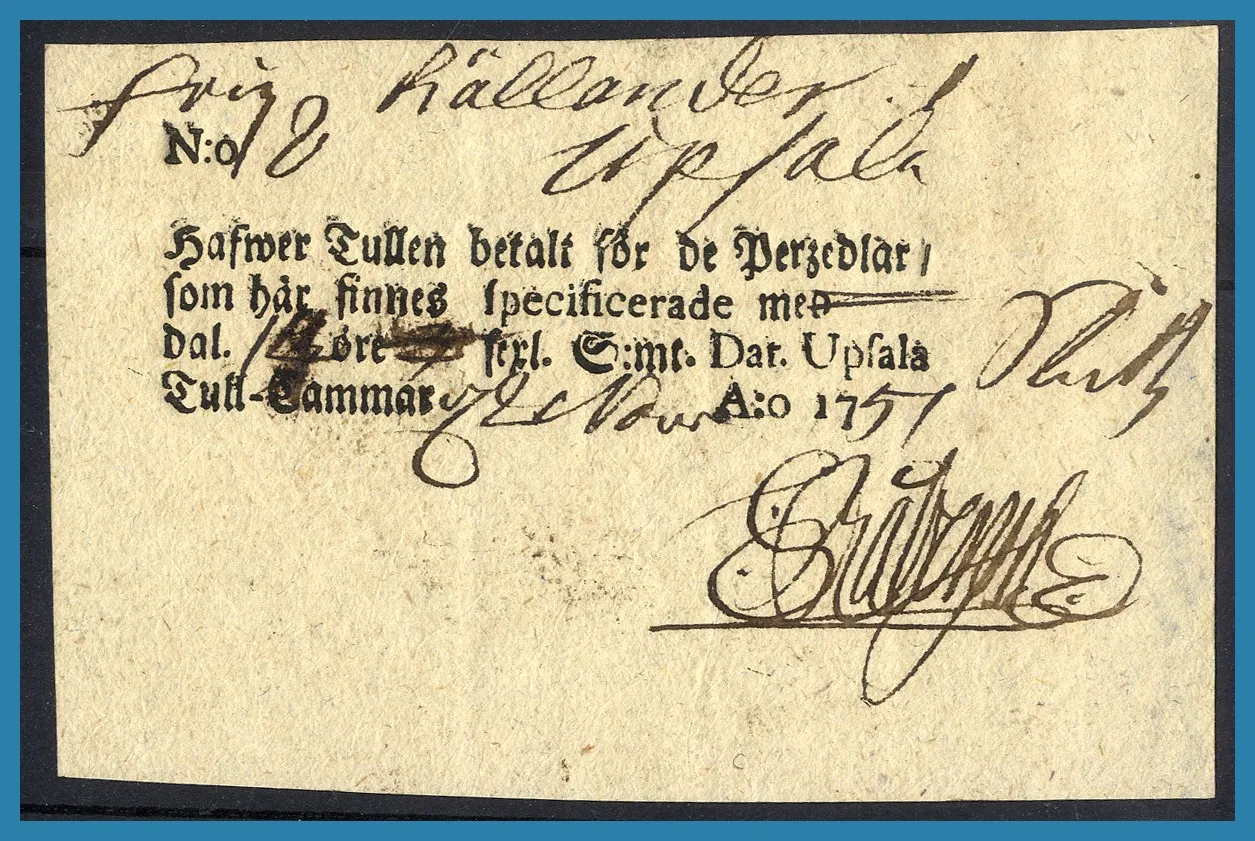 Källander
N:o 8 Upsala
Hafwer Tullen betalt för de Perzedlar /
som här finnes specificerade med
dal. öre sexl. S:mt. Dat. Upsala
Tull-Cammar d. 12 Nov A:o 1751